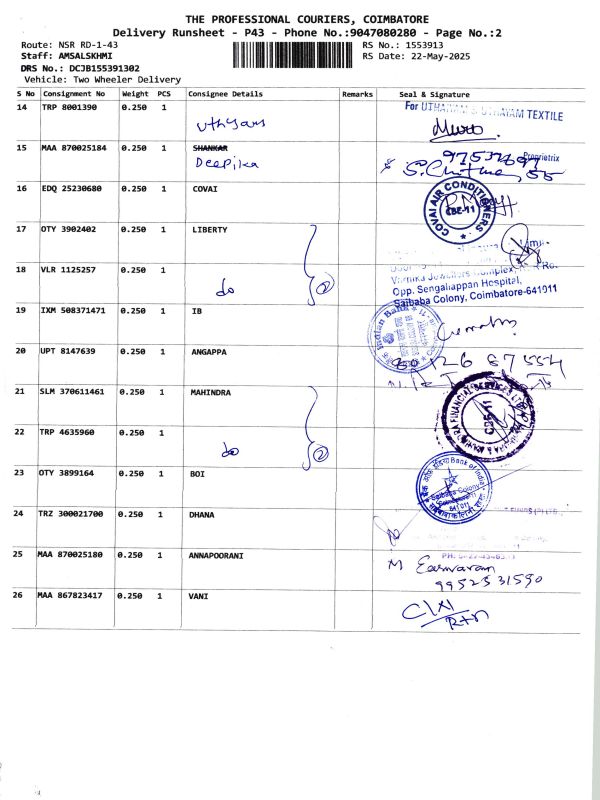 THE PROFESSIONAL COURIERS, COIMBATORE
Delivery Runsheet - P43 - Phone No.:9047080280 - Page No.:2
Route: NSR RD-1-43
RS No.: 1553913
Staff: AMSALSKHMI
RS Date: 22-May-2025
DRS No.: DCJB155391302
Vehicle: Two Wheeler Delivery
S No Consignment No Weight PCS Consignee Details Remarks Seal & Signature
14 TRP 8001390 0.250 1
For UTHAYAM TEXTILE
Proprietrix
15 MAA 870025184 0.250 1 SHANKAR
Deepika
16 EDQ 25230680 0.250 1 COVAI
COVAI AIR CONDITIONERS
CBE-11
17 OTY 3902402 0.250 1 LIBERTY
18 VLR 1125257 0.250 1
do 2
Jewellers Complex,
Opp. Sengaliappan Hospital,
Saibaba Colony, Coimbatore-641011
19 IXM 508371471 0.250 1 IB
Indian Bank
20 UPT 8147639 0.250 1 ANGAPPA
21 SLM 370611461 0.250 1 MAHINDRA
FINANCIAL SERVICES LTD
CBE-11
22 TRP 4635960 0.250 1
do 2
23 OTY 3899164 0.250 1 BOI
Bank of India
Saibaba Colony
24 TRZ 300021700 0.250 1 DHANA
25 MAA 870025180 0.250 1 ANNAPOORANI
M Easwaran
9952531590
26 MAA 867823417 0.250 1 VANI